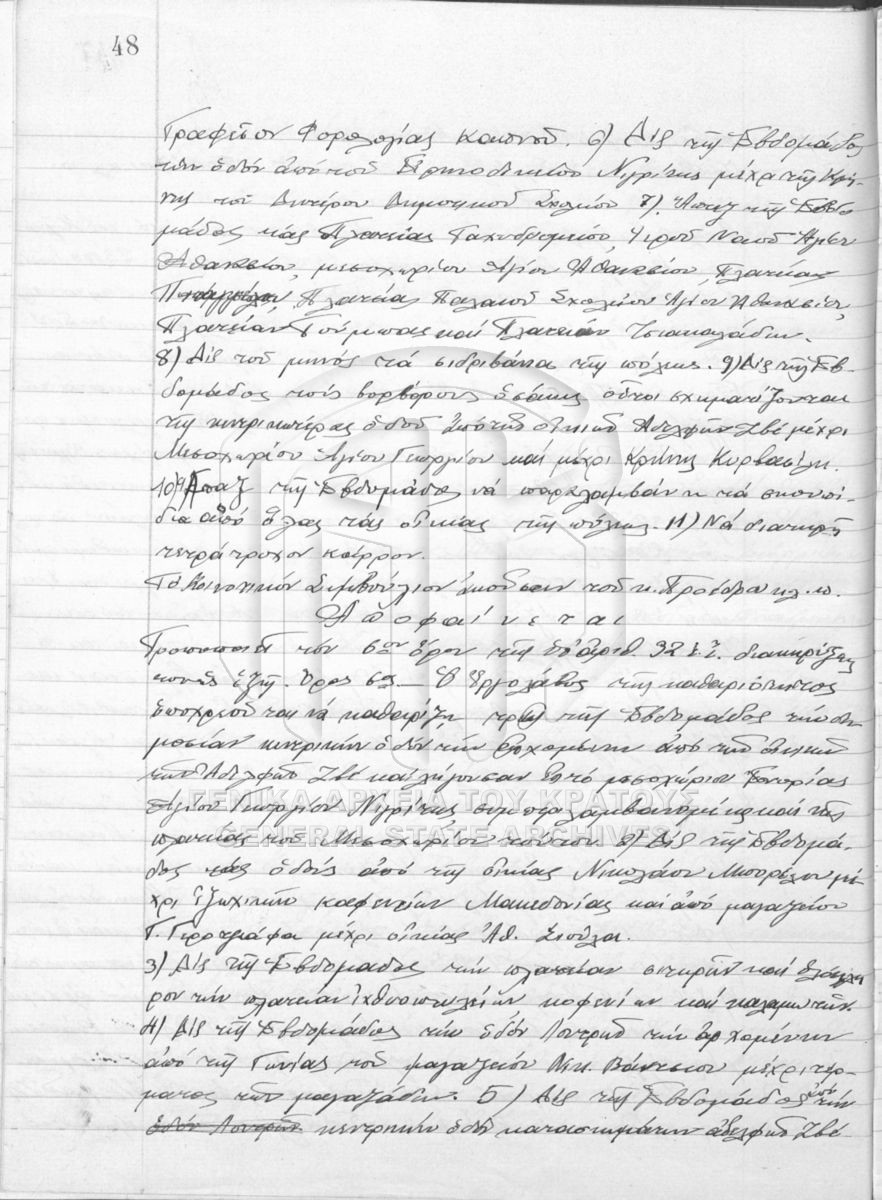 48
Γραφεῖον Φορολογίας Καπνοῦ. 6) Δίς τῆς Ἑβδομάδος
τήν ὁδόν ἀπό τοῦ Εἰρηνοδικείου Νιγρίτης μέχρι τῆς Κρή-
νης τοῦ Δευτέρου Δημοτικοῦ Σχολείου 7) Ἅπαξ τῆς Ἑβδο
μάδος τάς Πλατείας Ταχυδρομείου, Ἱεροῦ Ναοῦ Ἁγίου
Ἀθανασίου, μεσοχωρίου Ἁγίου Ἀθανασίου, Πλατείας
Πλατείας Παλαιοῦ Σχολείου Ἁγίου Ἀθανασίου,
Πλατείαν Γούμπας καί Πλατείαν Τσιακαλάδων.
8) Δίς τοῦ μηνός τά σιδριβάνια τῆς πόλεως. 9) Δίς τῆς Ἑβ-
δομάδος τούς βορβόρους ὁσάκις οὗτοι σχηματίζονται
τῆς κεντρικωτέρας ὁδοῦ ἀπό τῶν οἰκιῶν Ἀδελφῶν Ζβέ μέχρι
Μεσοχωρίου Ἁγίου Γεωργίου καί μέχρι Κρήνης Κυρβασίλη.
10) Ἅπαξ τῆς Ἑβδομάδος νά παραλαμβάνη τά σκουπί-
δια ἀπό ὅλας τάς οἰκίας τῆς πόλεως. 11) Νά διατηρῆ
τετράτροχον κάρρον.
Τό Κοινοτικόν Συμβούλιον ἀκοῦσαν τοῦ κ. Προέδρου κλ.π.
Ἀποφαίνεται
Τροποποιεῖ τόν 6ον ὅρον τῆς ὑπ' ἀριθ. 92 ἐ.ἔ. διακηρύξεως
ὡς ἑξῆς. Ὅρος 6ος — Ὁ Ἐργολάβος τῆς καθαριότητος
ὑποχρεοῦται νά καθαρίζη τρίς τῆς Ἑβδομάδος τήν δη-
μοσίαν κεντρικήν ὁδόν τήν ἐρχομένην ἀπό τῶν οἰκιῶν
τῶν Ἀδελφῶν Ζβέ καί λήγουσαν εἰς τό μεσοχώριον Ἐνορίας
Ἁγίου Γεωργίου Νιγρίτης συμπεριλαμβανομένης καί τῆς
πλατείας τοῦ Μεσοχωρίου τούτου. 2) Δίς τῆς Ἑβδομά-
δος τάς ὁδούς ἀπό τῆς οἰκίας Νικολάου Μπορέλου μέ-
χρι ἐξωχικοῦ καφενείου Μακεδονίας καί ἀπό μαγαζείου
Γ. Γεροτζιάφα μέχρι οἰκίας Ἀθ. Σιούλα.
3) Δίς τῆς Ἑβδομάδος τήν πλατείαν σιτηρῶν καί ὁλόκλη
ρον τήν πλατείαν ἰχθυοπωλείων καφενείων καί καλαμωτῶν.
4) Δίς τῆς Ἑβδομάδος τήν ὁδόν Λουτροῦ τήν ἀρχομένην
ἀπό τῆς Γωνίας τοῦ μαγαζείου Νικ. Βάντσιου μέχρι τέρ-
ματος τῶν μαγαζείων. 5) Δίς τῆς Ἑβδομάδος ἀπό τήν
ὁδόν Λουτροῦ κεντρικήν ὁδόν καταστημάτων ἀδελφῶν Ζβέ
ΓΕΝΙΚΑ ΑΡΧΕΙΑ ΤΟΥ ΚΡΑΤΟΥΣ
GENERAL STATE ARCHIVES